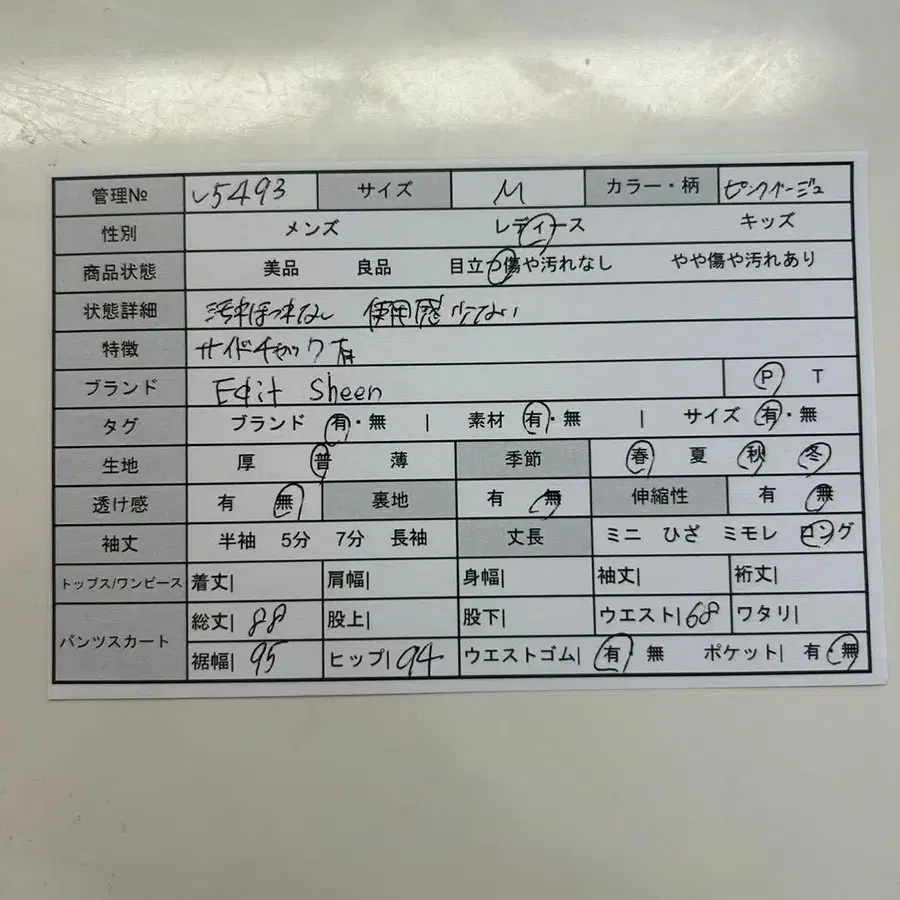 管理№ V5493 サイズ M カラー・柄 ピンクベージュ
性別 メンズ レディース キッズ
商品状態 美品 良品 目立つ傷や汚れなし やや傷や汚れあり
状態詳細 汚れほつれなし 使用感少ない
特徴 サイドチャック有
ブランド Edit Sheen P T
タグ ブランド 有・無 | 素材 有・無 | サイズ 有・無
生地 厚 普 薄 季節 春 夏 秋 冬
透け感 有 無 裏地 有 無 伸縮性 有 無
袖丈 半袖 5分 7分 長袖 丈長 ミニ ひざ ミモレ ロング
トップス/ワンピース 着丈| 肩幅| 身幅| 袖丈| 裄丈|
パンツスカート 総丈| 88 股上| 股下| ウエスト| 68 ワタリ|
裾幅| 95 ヒップ| 94 ウエストゴム| 有 無 ポケット| 有・無